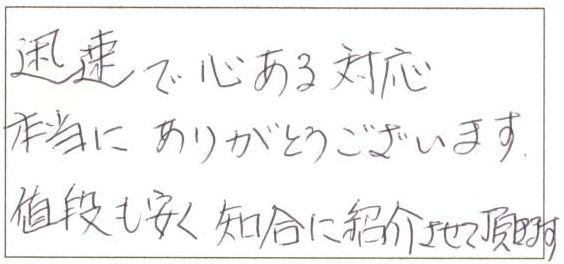 迅速で心ある対応
本当にありがとうございます.
値段も安く知合に紹介させて頂きます